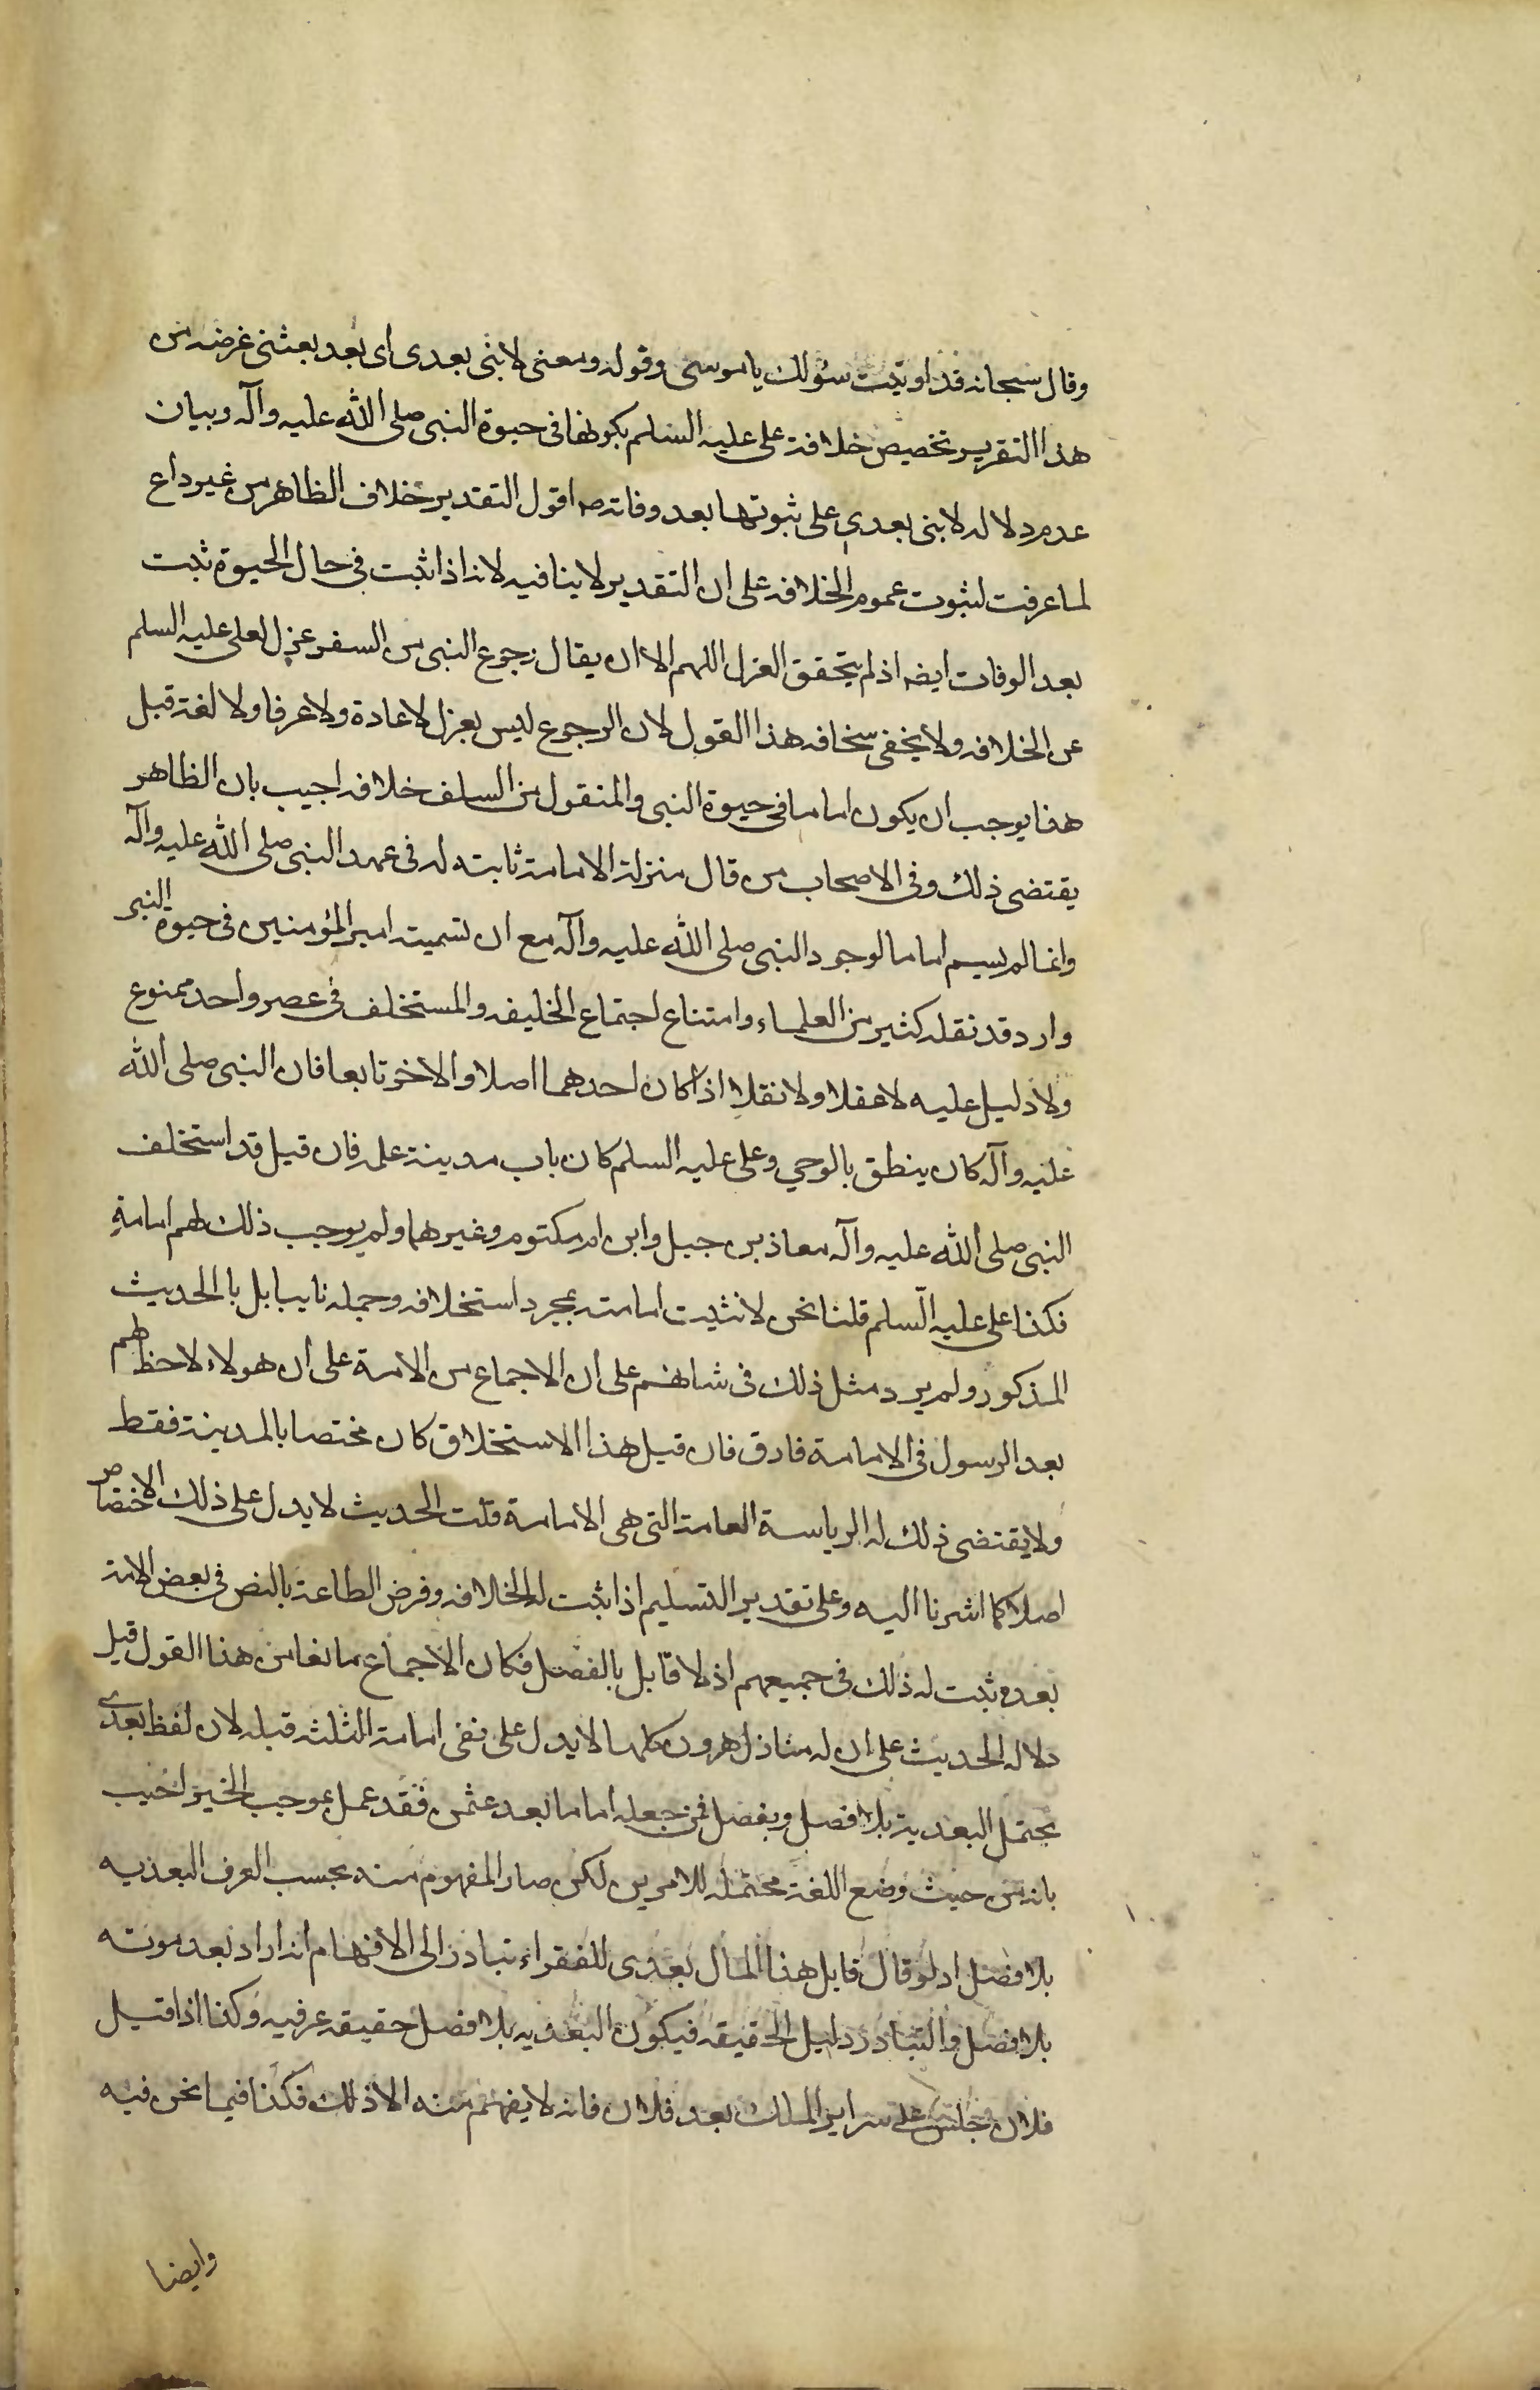 وقال سبحانه قد اوتيت سؤلك يا موسى وقوله ومعنى لا نبى بعدى اى بعد بعثنى غرضه من
هذا التقرير تخصيص خلافة على عليه السلم بكونها فى حيوة النبى صلى الله عليه وآله وبيان
عدم دلاله لا نبى بعدى على ثبوتها بعد وفاته صه اقول التقدير خلاف الظاهر من غير داع
لما عرفت لثبوت عموم الخلافه على ان التقدير لا ينافيه لانه اذا ثبت فى حال الحيوة ثبت
بعد الوفات ايضه اذ لم يتحقق العزل اللهم الا ان يقال رجوع النبى من السفر عزل لعلى عليه السلم
عن الخلافه ولا يخفى سخافه هذا القول لان الرجوع ليس بعزل لا عادة ولا عرفا ولا لغة قيل
هذا يوجب ان يكون اماما فى حيوة النبى والمنقول من السلف خلافه اجيب بان الظاهر
يقتضى ذلك وفى الاصحاب من قال منزلة الامامة ثابته له فى عهد النبى صلى الله عليه وآله
وانما لم يسم اماما لوجود النبى صلى الله عليه وآله مع ان تسميته امير المؤمنين فى حيوة النبى
وارد قد نقله كثير من العلماء وامتناع اجتماع الخليفه والمستخلف فى عصر واحد ممنوع
ولا دليل عليه لا عقلا ولا نقلا اذا كان احدهما اصلا والاخر تابعا فان النبى صلى الله
عليه وآله كان ينطق بالوحي وعلى عليه السلم كان باب مدينة علمه فان قيل قد استخلف
النبى صلى الله عليه وآله معاذ بن جبل وابن ام مكتوم وغيرهما ولم يوجب ذلك لهم امامة
فكذا على عليه السّلم قلنا نحن لا نثبت امامته بمجرد استخلافه وجعله نايبا بل بالحديث
المذكور ولم يرد مثل ذلك فى شانهم على ان الاجماع من الامة على ان هولاء لا حظ لهم
بعد الرسول فى الامامة فارق فان قيل هذا الاستخلاف كان مختصا بالمدينة فقط
ولا يقتضى ذلك له الرياسة العامة التى هى الامامة قلت الحديث لا يدل على ذلك الاختصاص
اصلا كما اشرنا اليه وعلى تقدير التسليم اذا ثبت له الخلافه وفرض الطاعة بالنص فى بعض الامة
بعده ثبت له ذلك فى جميعهم اذ لا قايل بالفصل فكان الاجماع مانعا من هذا القول قيل
دلاله الحديث على ان له منازل هرون كلها لا يدل على نفى امامة الثلثه قبله لان لفظ بعدى
يحتمل البعدية بلا فصل وبفصل فمن جعله اماما بعد عثمن فقد عمل بموجب الخبر اجيب
بانه من حيث وضع اللغة محتمله للامرين لكن صار المفهوم منه بحسب العرف البعديه
بلا فصل اذ لو قال قايل هذا المال بعدى للفقراء تبادر الى الافهام انه اراد بعد موته
بلا فصل والتبادر دليل الحقيقه فيكون البعديه بلا فصل حقيقه عرفيه وكذا اذا قيل
فلان جلس على سراير الملك بعد فلان فانه لا يفهم منه الا ذلك فكذا فيما نحن فيه
وايضا